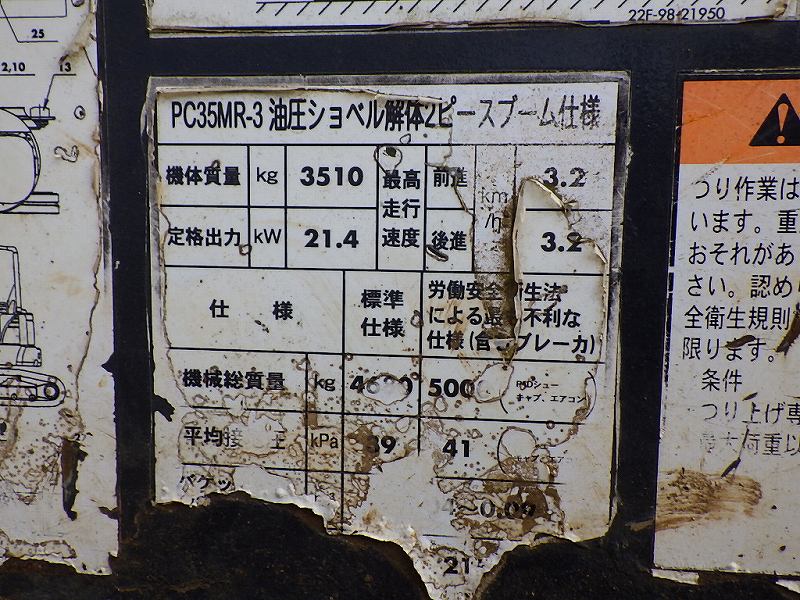 25
2,10
13
22F-98-21950
PC35MR-3 油圧ショベル解体2ピースブーム仕様
機体質量 kg 3510 最高走行速度 前進 km/h 3.2
定格出力 kW 21.4 後進 3.2
仕様 標準仕様 労働安全衛生法
による最も不利な
仕様(含 ブレーカ)
機械総質量 kg
キャブ、エアコン
平均接 圧 kPa 39 41
バケッ
~0.09
21
つり作業は
います。重
おそれがあ
さい。認め
全衛生規則
限ります。
条件
つり上げ専
荷重以